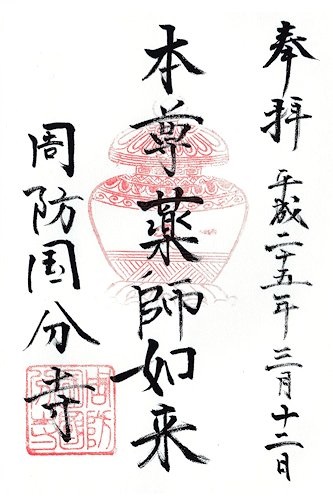 奉拝 平成二十五年三月十二日
本尊薬師如来
周防国分寺
周防国分寺